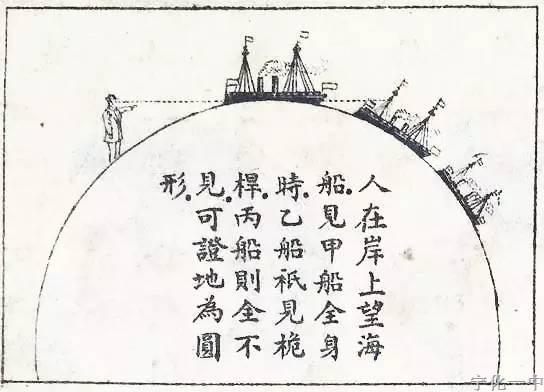 人在岸上望海
船見甲船全身
時乙船祇見桅
桿丙船則全不
見可證地為圓
形
宁化一中